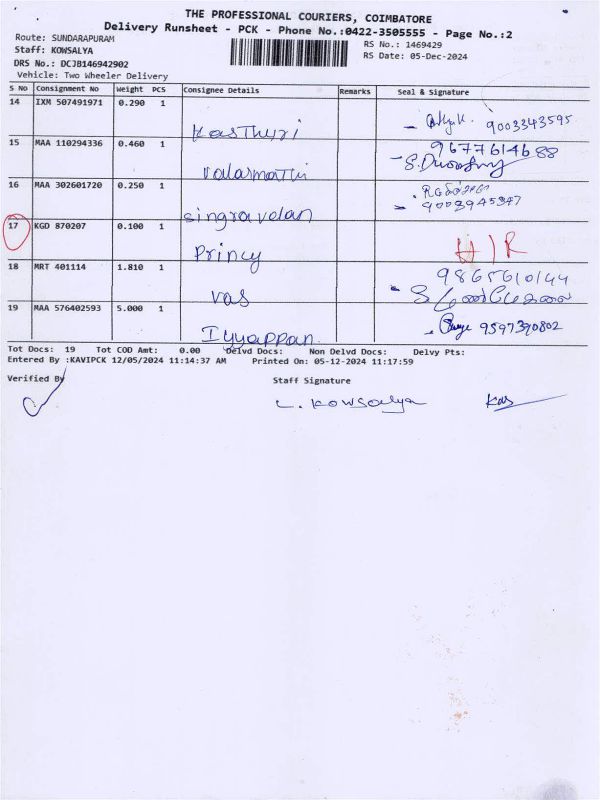 THE PROFESSIONAL COURIERS, COIMBATORE
Delivery Runsheet - PCK - Phone No.:0422-3505555 - Page No.:2
Route: SUNDARAPURAM
RS No.: 1469429
Staff: KOWSALYA
RS Date: 05-Dec-2024
DRS No.: DCJB146942902
Vehicle: Two Wheeler Delivery
S No Consignment No Weight PCS Consignee Details Remarks Seal & Signature
14 IXM 507491971 0.290 1
Kasthuri 9003343595
15 MAA 110294336 0.460 1 9677614688
Valarmathi
16 MAA 302601720 0.250 1
Singravelan 9003945347
17 KGD 870207 0.100 1
Princy H/R
18 MRT 401114 1.810 1 9865610144
Vas
19 MAA 576402593 5.000 1 9597390802
Iyyappan
Tot Docs: 19 Tot COD Amt: 0.00 Delvd Docs: Non Delvd Docs: Delvy Pts:
Entered By :KAVIPCK 12/05/2024 11:14:37 AM Printed On: 05-12-2024 11:17:59
Verified By Staff Signature
L. Kowsalya Kas